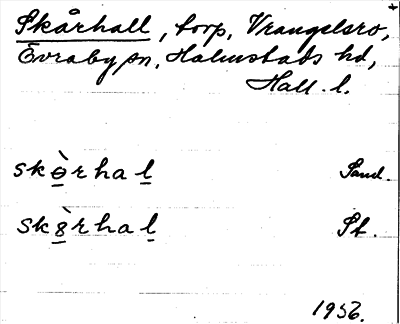 Skårhall, torp, Vrangelsro,
Evraby sn, Halmstads hd,
Hall. l.
skɵ̠̀rhal̠ Sand.
sk8̠̀rhal̠ St.
1956.